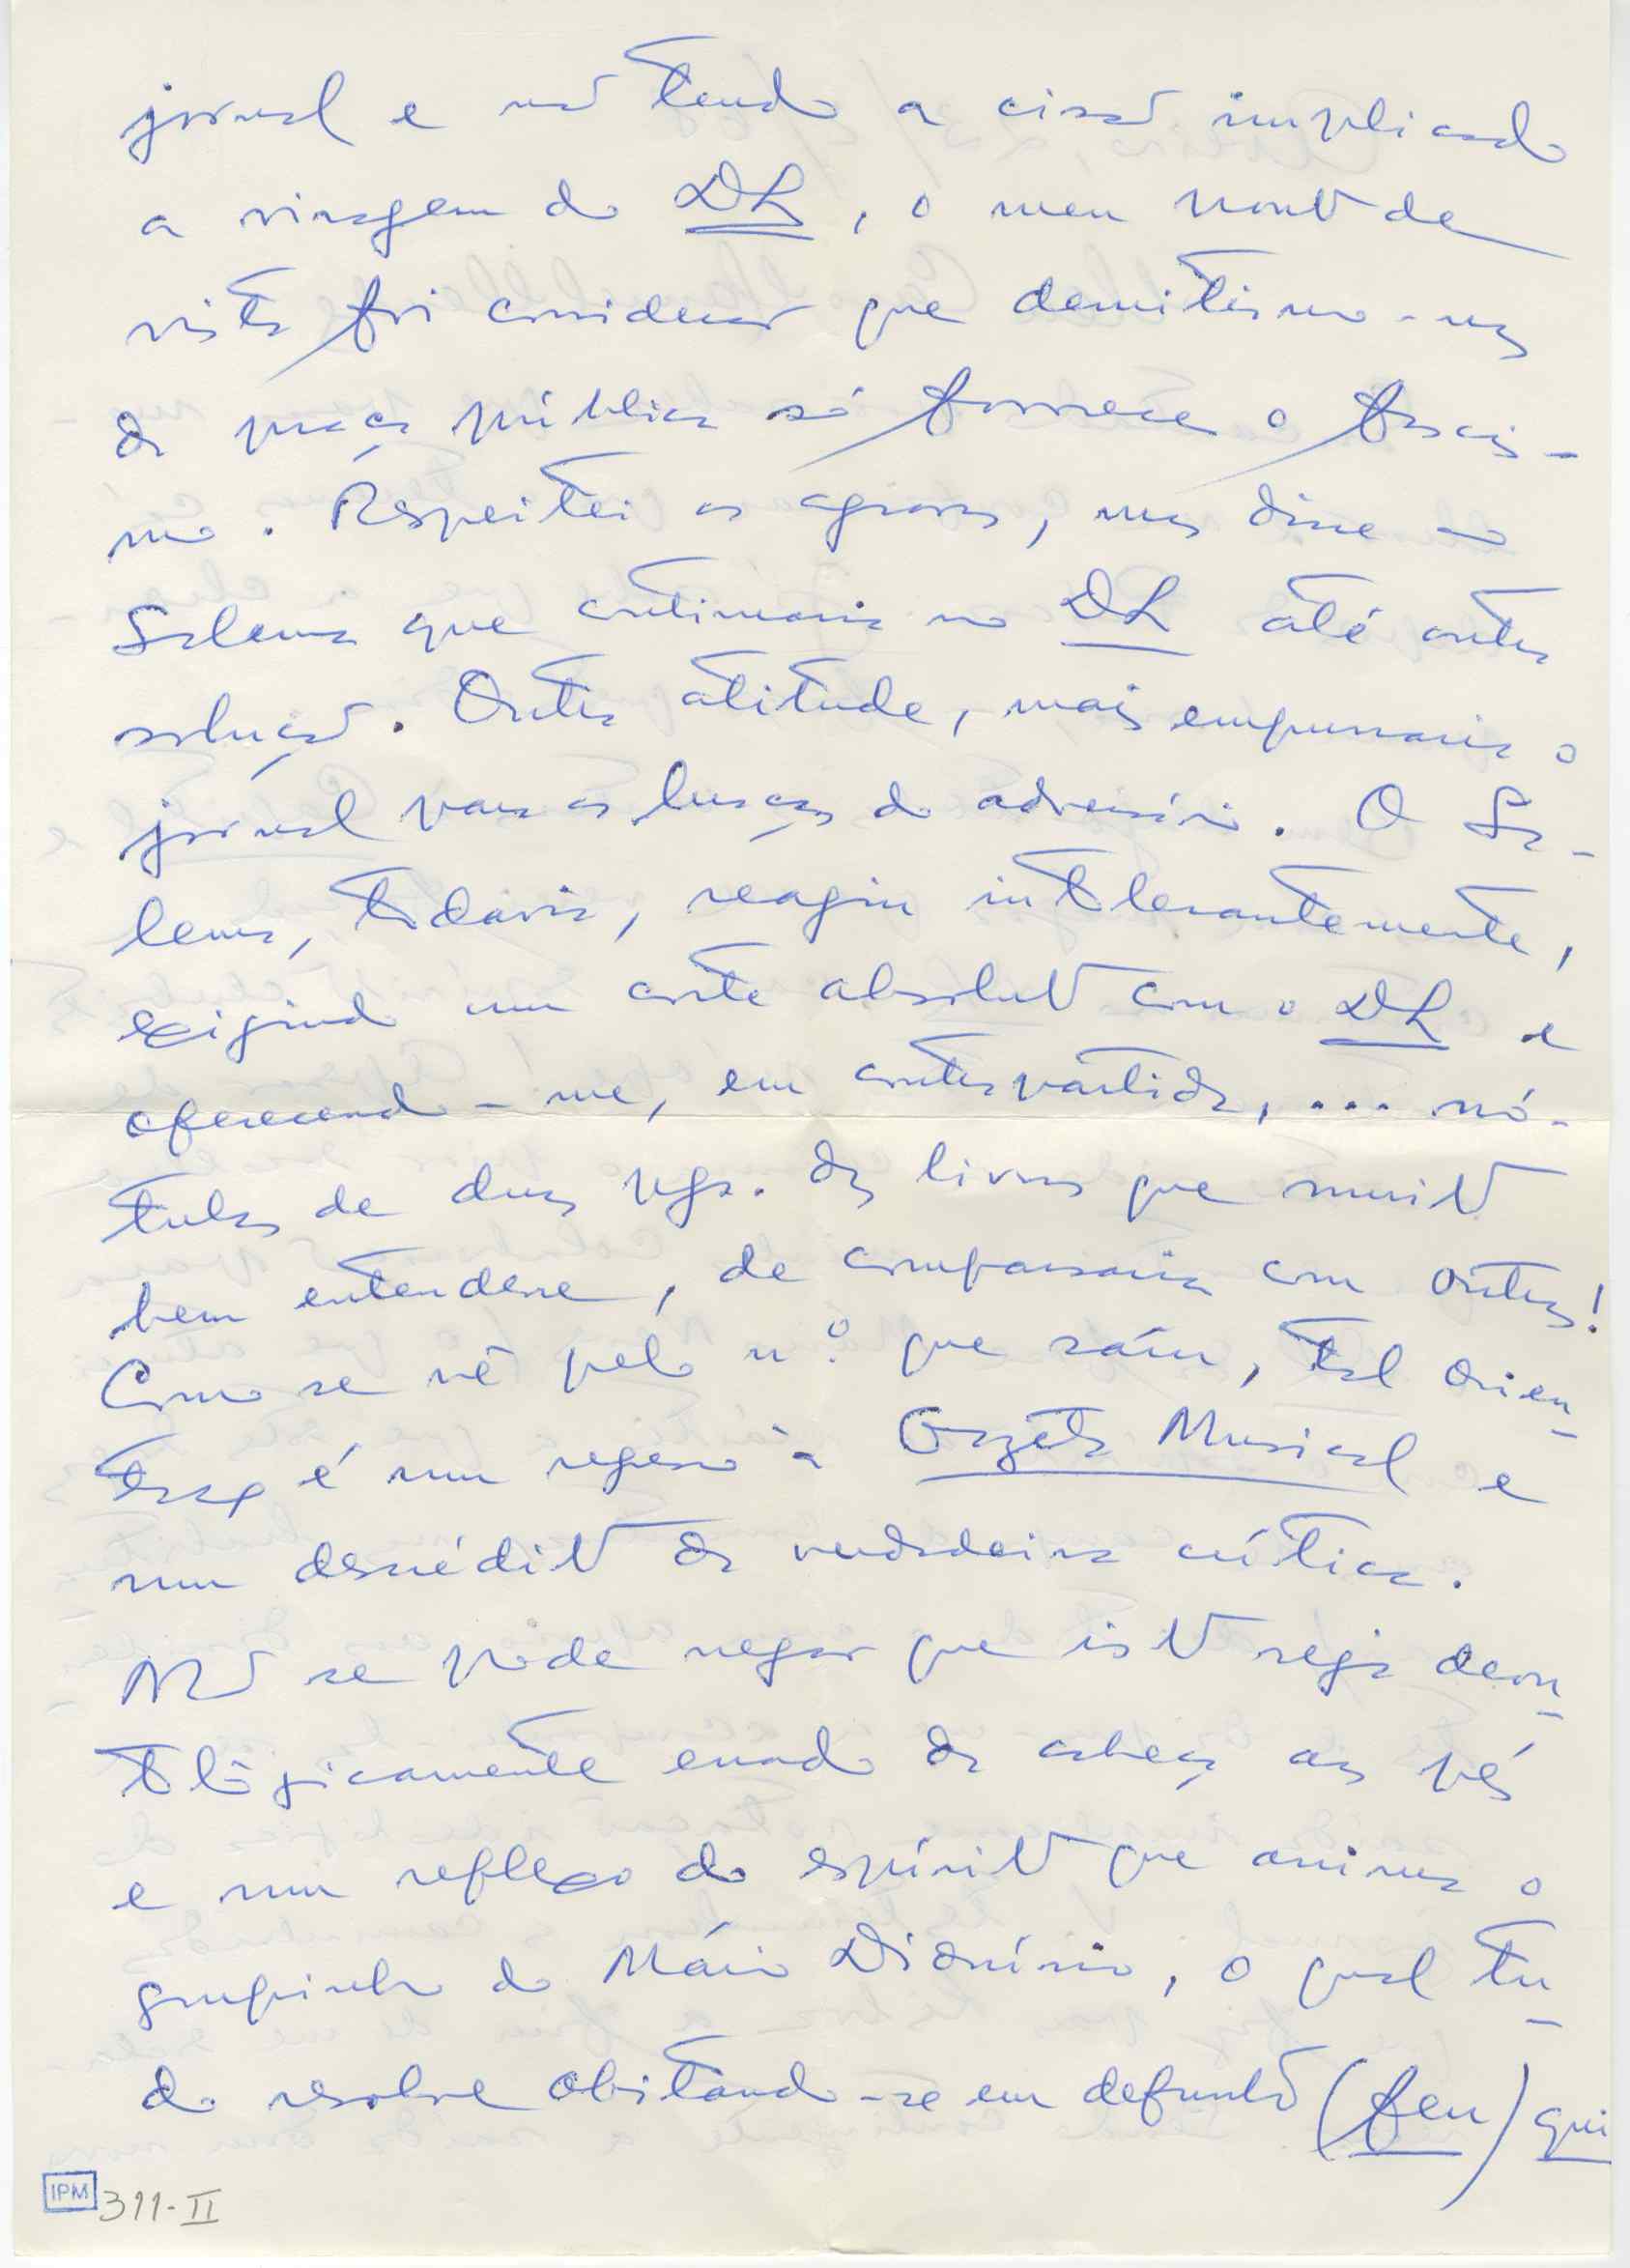 jornal e não tendo a cisão implicado
a viragem do DL, o meu ponto de
vista foi considerar que demitirmo-nos
da praça pública só favorece o fascis-
mo. Respeitei os agravos, mas disse ao
Salema que continuaria no DL até outra
solução. Outra atitude, mais empurraria o
jornal para os braços do adversário. O Sa-
lema, todavia, reagiu intolerantemente,
exigindo um corte absoluto com o DL e
oferecendo-me, em contrapartida, ... nó-
tulas de duas pgs. dos livros que muito
bem entendesse, de comparsaria com outros!
Como se vê pelo n.º que saíu, tal orien-
tação é um regresso à Gazeta Musical e
um descrédito da verdadeira crítica.
Não se pode negar que isto seja deon-
tològicamente errado da cabeça aos pés
e um reflexo do espírito que anima o
grupinho do Mário Dionísio, o qual tu-
do resolve obstando-se em defunto (feu) qui
IPM 311-II